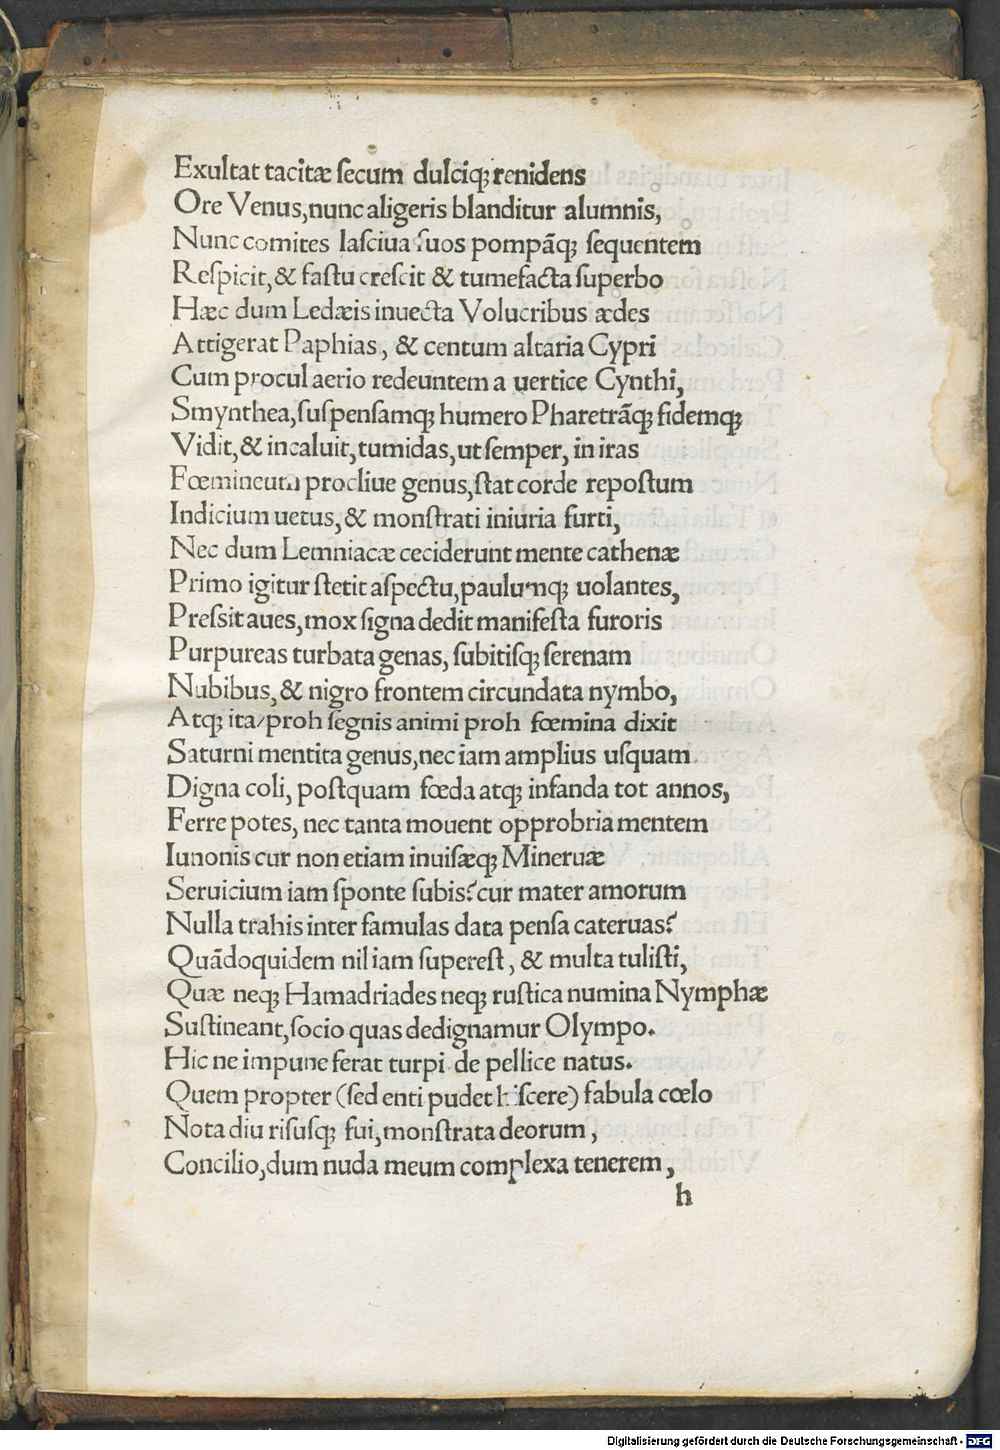 Exultat tacitæ ſecum dulciq; renidens
Ore Venus, nunc aligeris blanditur alumnis,
Nunc comites laſciua ſuos pompāq; ſequentem
Reſpicit, & faſtu creſcit & tumefacta ſuperbo
Hæc dum Ledæis inuecta Volucribus ædes
Attigerat Paphias, & centum altaria Cypri
Cum procul aerio redeuntem a uertice Cynthi,
Smynthea, ſuſpenſamq; humero Pharetrāq; fidemq;
Vidit, & incaluit, tumidas, ut ſemper, in iras
Fœmineum procliue genus, ſtat corde repoſtum
Indicium uetus, & monſtrati iniuria furti,
Nec dum Lemniacæ ceciderunt mente cathenæ
Primo igitur ſtetit aſpectu, paulumq; uolantes,
Preſsit aues, mox ſigna dedit manifeſta furoris
Purpureas turbata genas, ſubitiſq; ſerenam
Nubibus, & nigro frontem circundata nymbo,
Atq; ita/proh ſegnis animi proh fœmina dixit
Saturni mentita genus, nec iam amplius uſquam
Digna coli, poſtquam fœda atq; infanda tot annos,
Ferre potes, nec tanta mouent opprobria mentem
Iunonis cur non etiam inuiſæq; Mineruæ
Seruicium iam ſponte ſubis? cur mater amorum
Nulla trahis inter famulas data penſa cateruas?
Quādoquidem nil iam ſupereſt, & multa tuliſti,
Quæ neq; Hamadriades neq; ruſtica numina Nymphæ
Suſtineant, ſocio quas dedignamur Olympo.
Hic ne impune ferat turpi de pellice natus.
Quem propter (ſed enti pudet hiſcere) fabula cœlo
Nota diu riſuſq; fui, monſtrata deorum,
Concilio, dum nuda meum complexa tenerem,
h
Digitalisierung gefördert durch die Deutsche Forschungsgemeinschaft - DFG